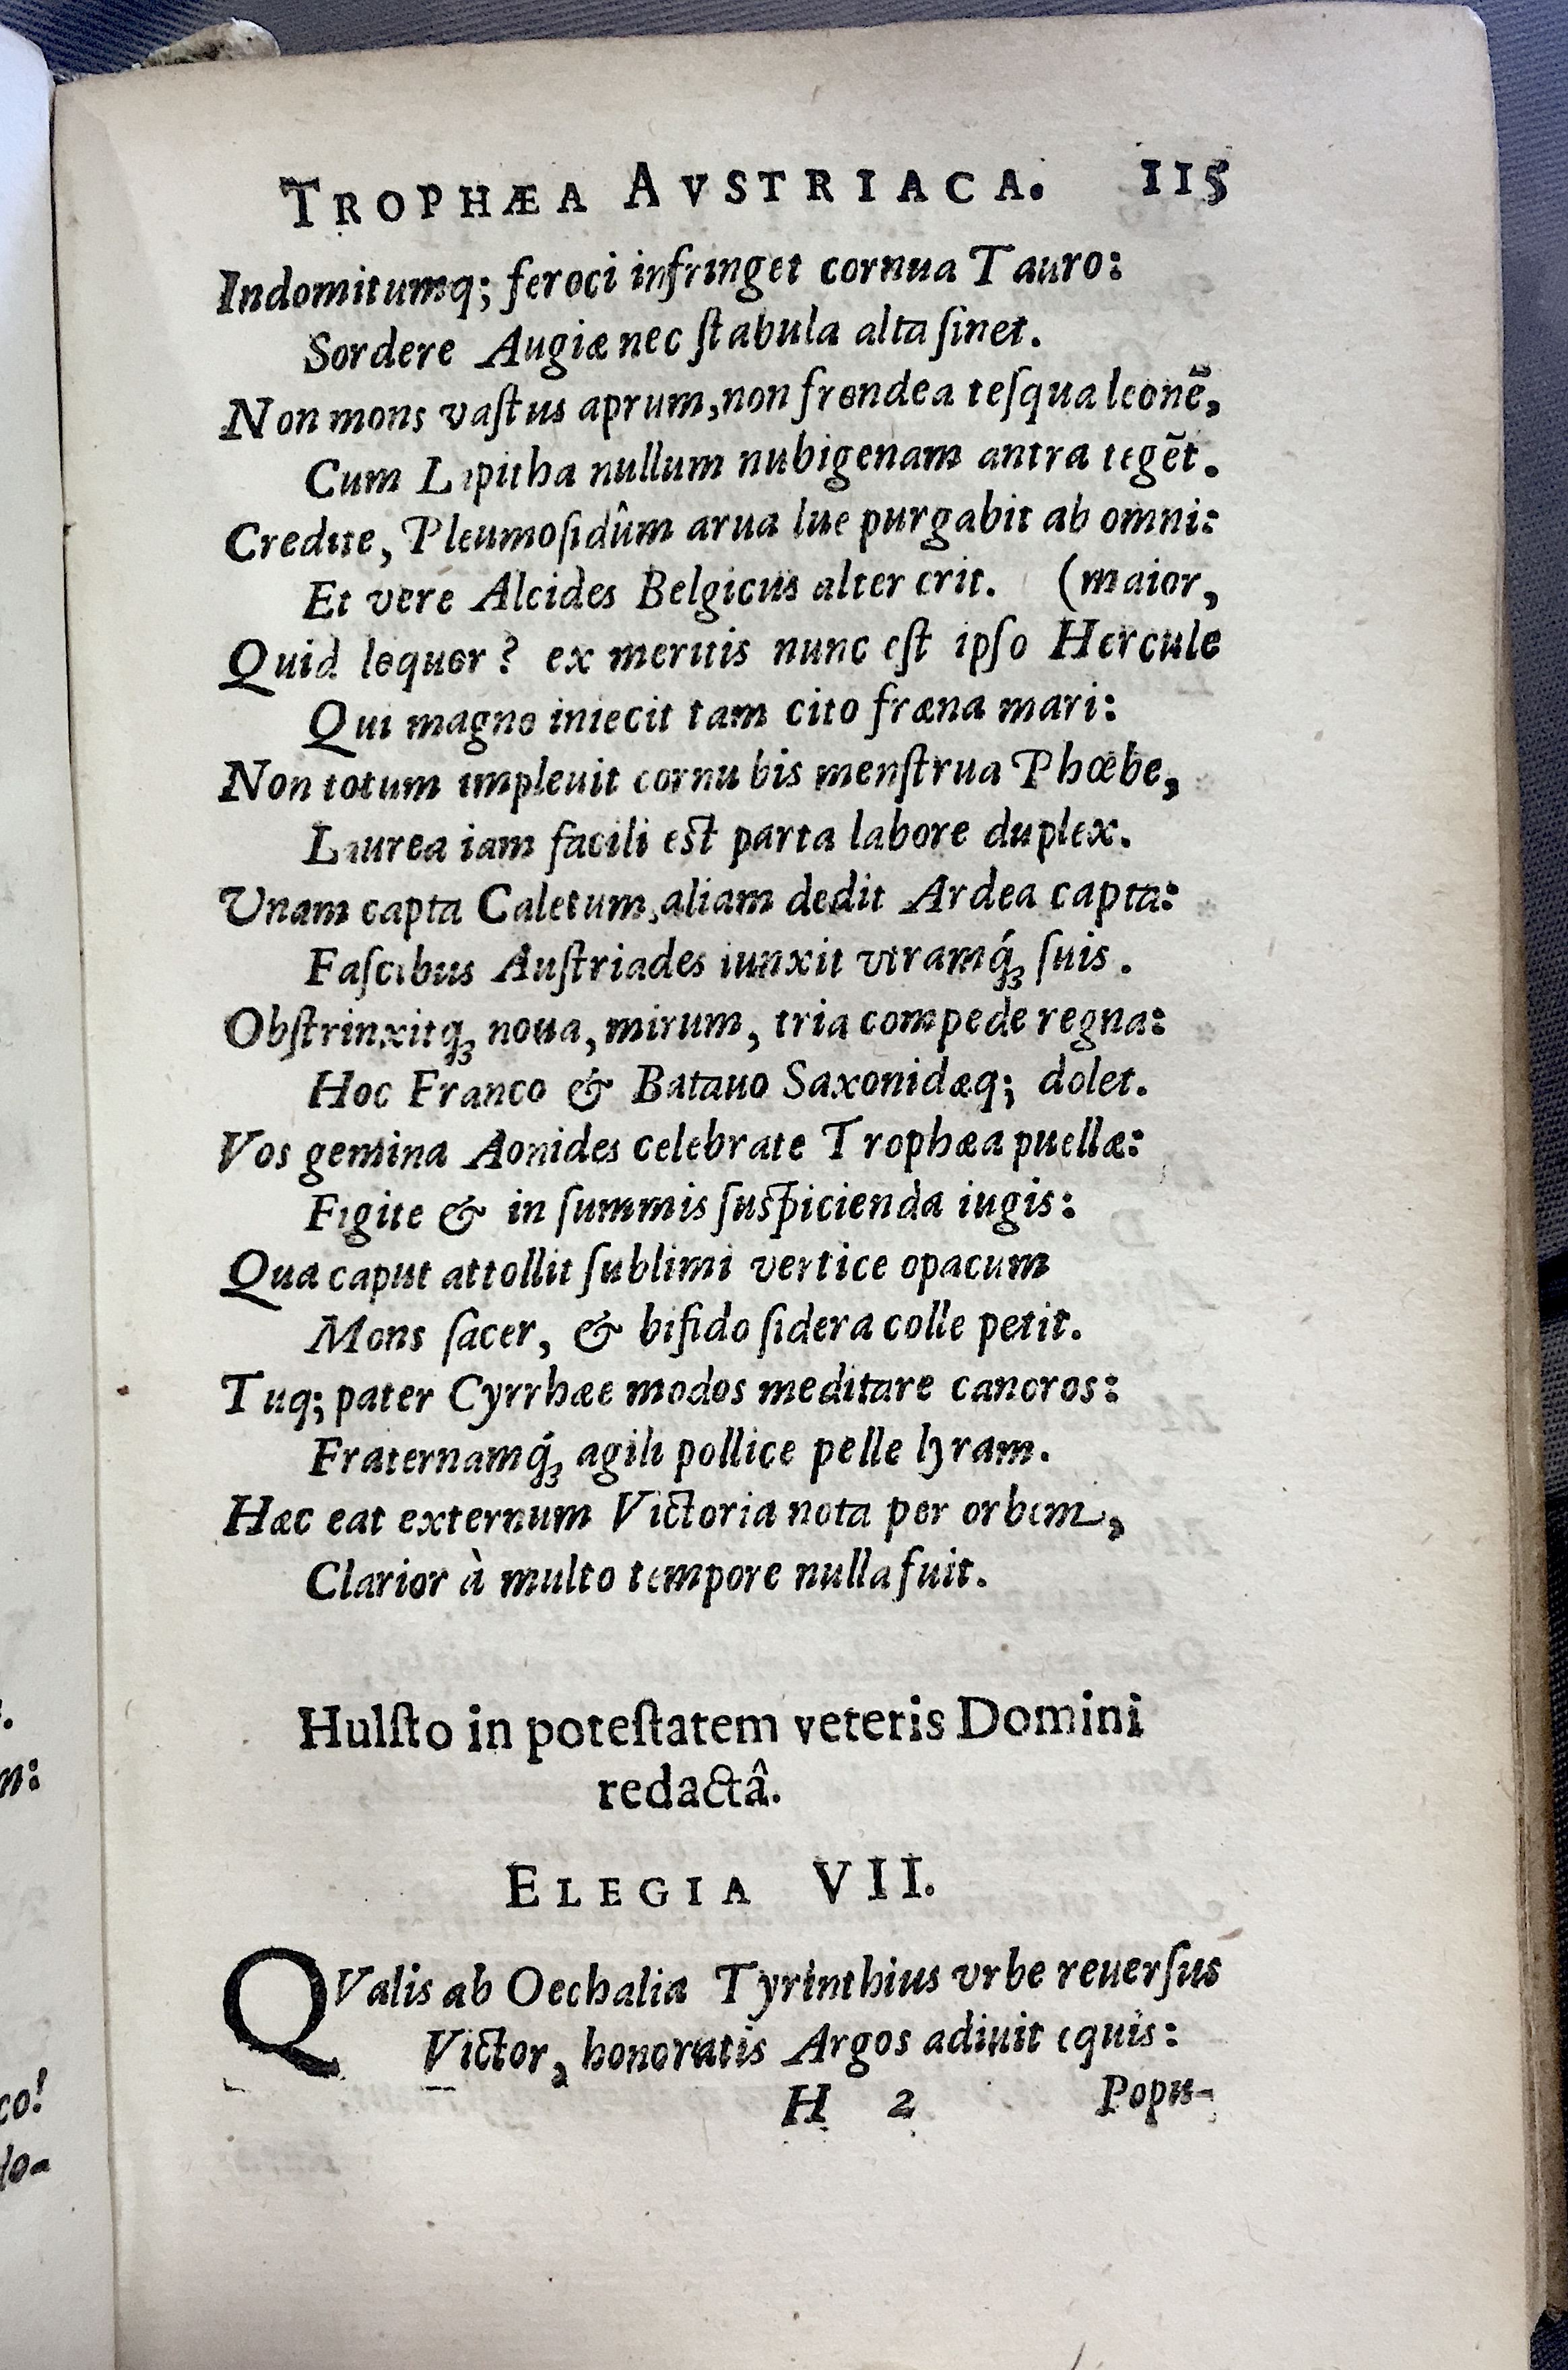 TROPHÆA AVSTRIACA. 115
Indomitumq; feroci infringet cornua Tauro:
Sordere Augiæ nec ſtabula alta ſinet.
Non mons vaſtus aprum, non frondea teſqua leonē,
Cum Lapitha nullum nubigenam antra tegēt.
Credite, Pleumoſidûm arua lue purgabit ab omni:
Et verè Alcides Belgicus alter erit. (maior,
Quid loquor? ex meritis nunc eſt ipſo Hercule
Qui magno iniecit tam cito fræna mari:
Non totum impleuit cornu bis menſtrua Phœbe,
Laurea iam facili eſt parta labore duplex.
Unam capta Caletum, aliam dedit Ardea capta:
Faſcibus Auſtriades iunxit vtramq́ꝫ ſuis.
Obſtrinxitqꝫ noua, mirum, tria compede regna:
Hoc Franco & Batauo Saxonidæq; dolet.
Vos gemina Aonides celebrate Trophæa puellæ:
Figite & in ſummis ſuſpicienda iugis:
Qua caput attollit ſublimi vertice opacum
Mons ſacer, & bifido ſidera colle petit.
Tuq; pater Cyrrhæe modos meditare canoros:
Fraternamq́ꝫ agili pollice pelle lyram.
Hæc eat externum Victoria nota per orbem,
Clarior à multo tempore nulla fuit.
Hulſto in poteſtatem veteris Domini
redactâ.
ELEGIA VII.
QValis ab Oechalia Tyrinthius vrbe reuerſus
Victor, honoratis Argos adiuit equis:
H 2 Popu-